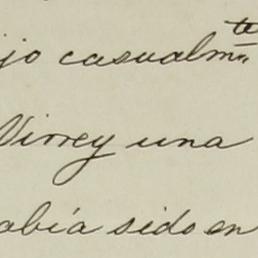 ijo casualm.te
Virrey una
abía sido en